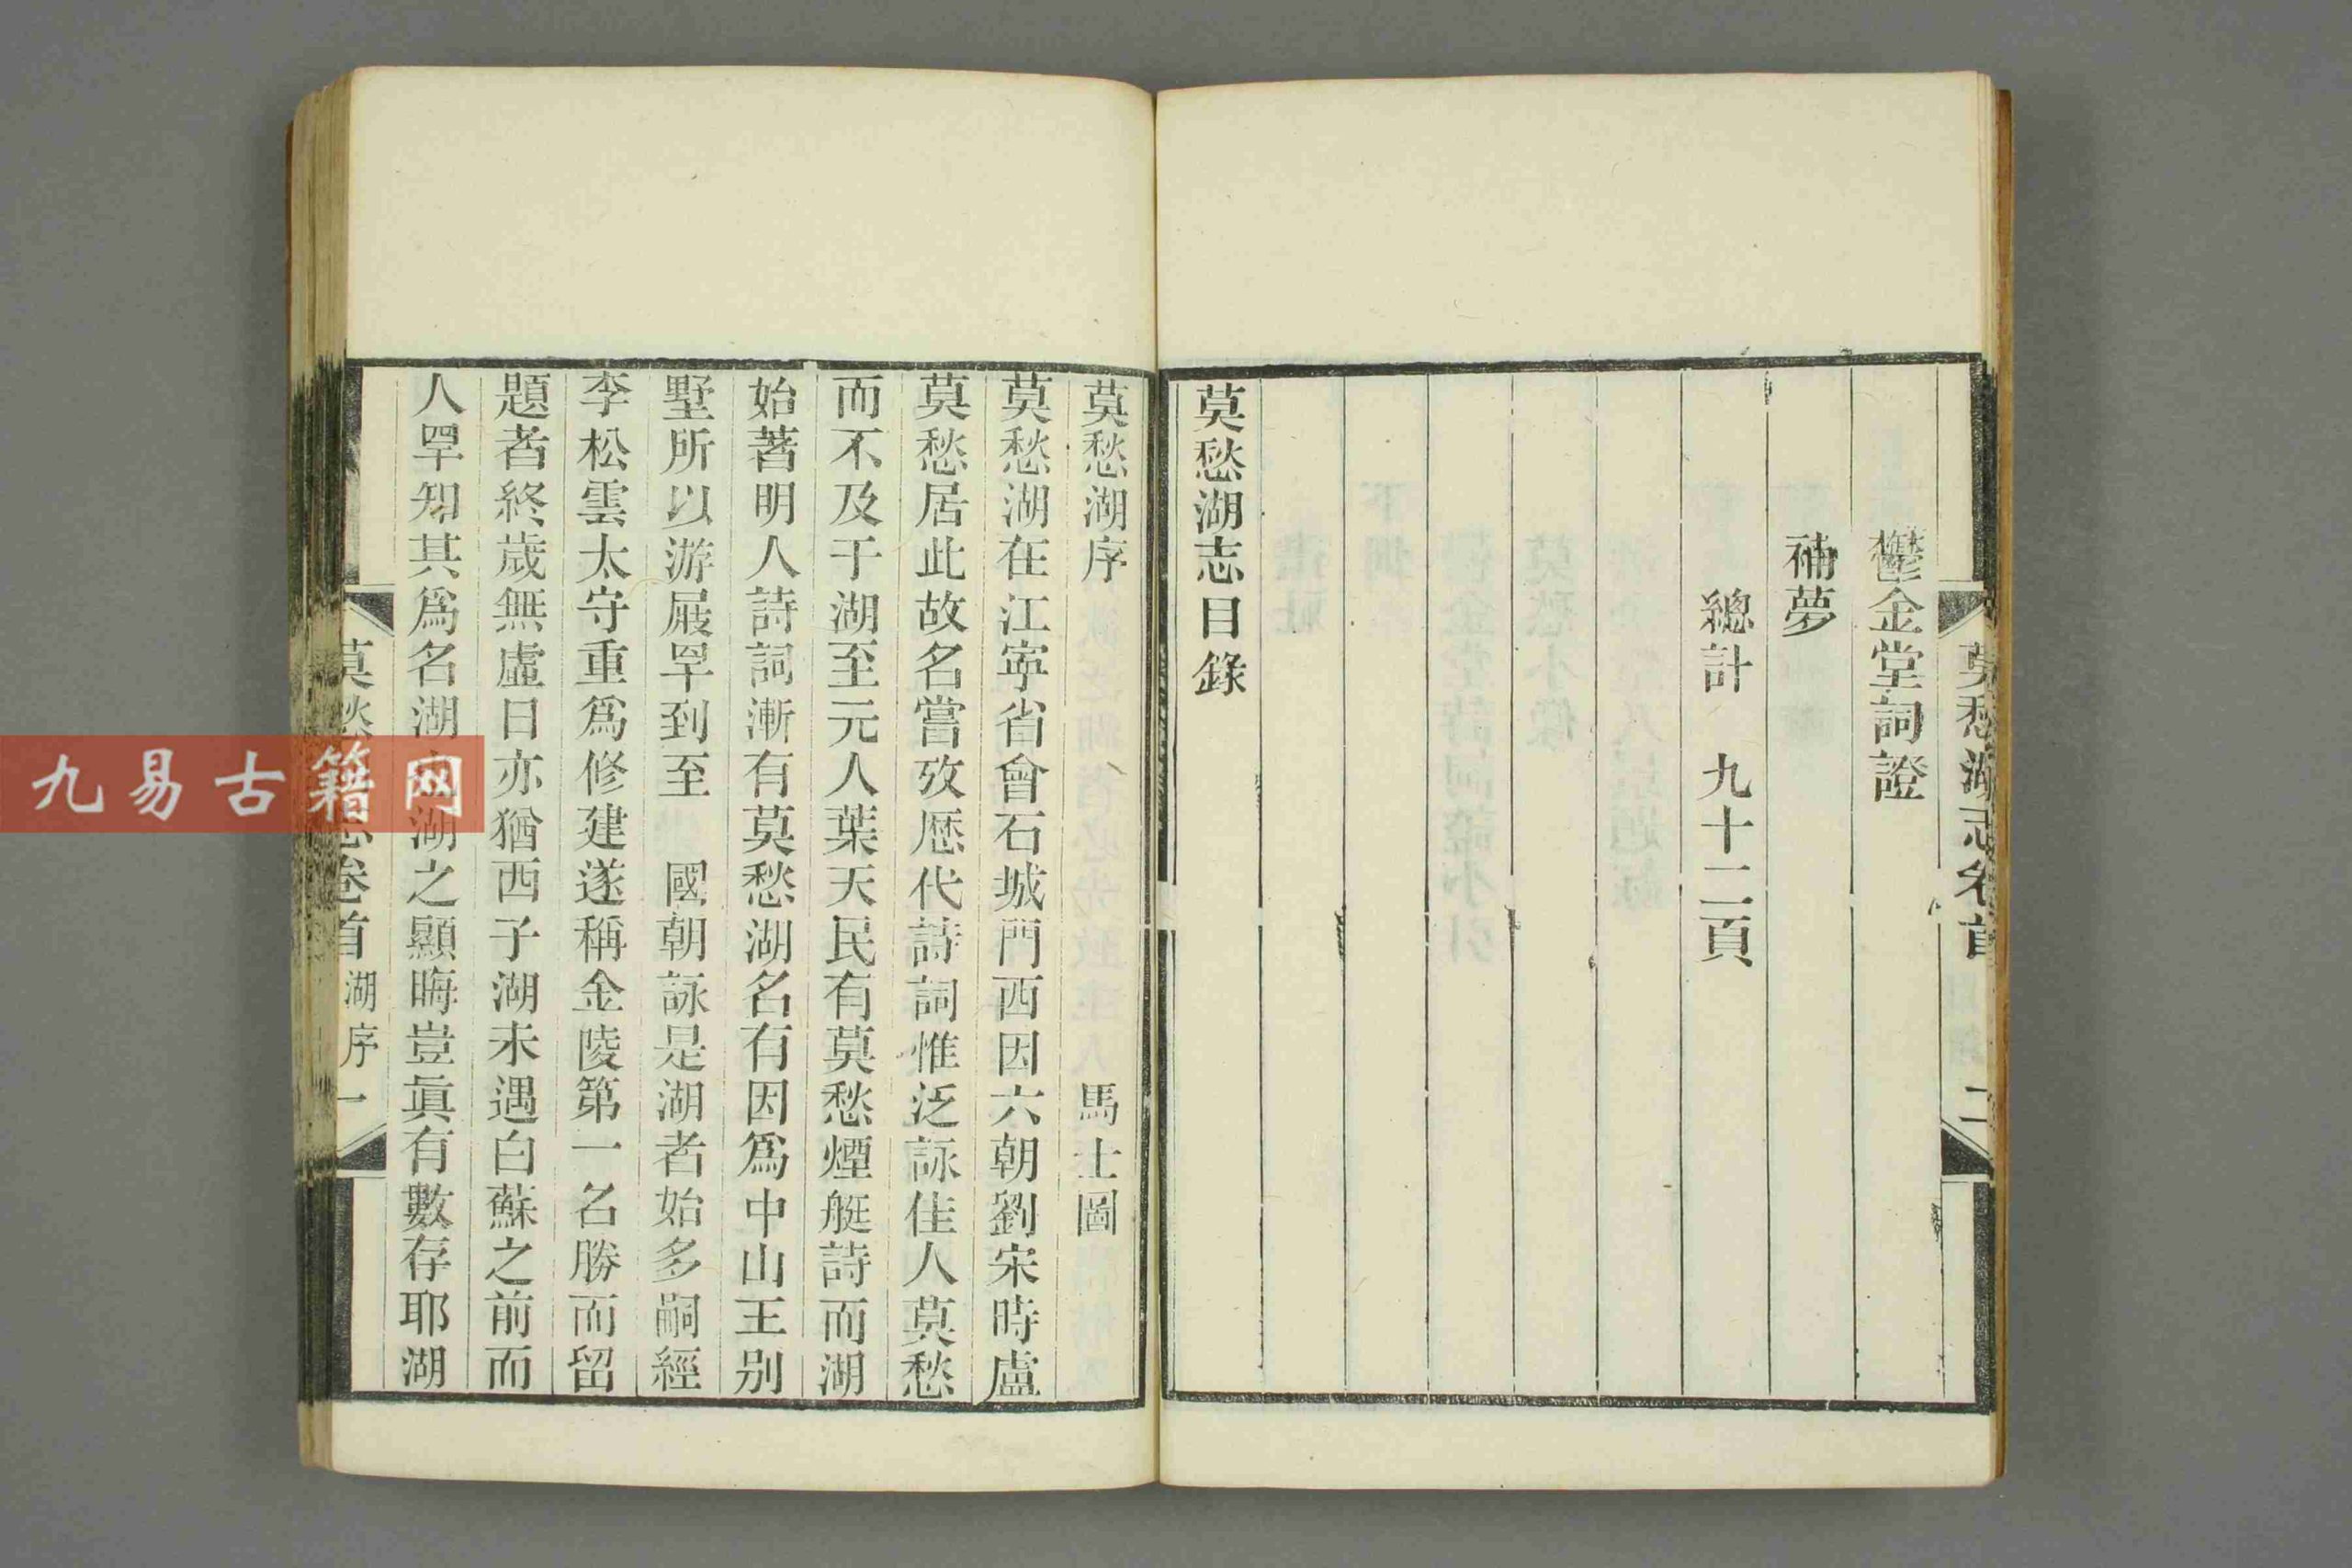 鬱金堂詞證
補夢
總計 九十二頁
莫愁湖志目錄
莫愁湖志卷首 二
莫愁湖序 馬士圖
莫愁湖在江寧省會石城門西因六朝劉宋時盧
莫愁居此故名嘗攷歷代詩詞惟泛詠佳人莫愁
而不及于湖至元人葉天民有莫愁煙艇詩而湖
始著明人詩詞漸有莫愁湖名有因爲中山王别
墅所以游屐罕到至 國朝詠是湖者始多嗣經
李松雲太守重爲修建遂稱金陵第一名勝而留
題者終歲無虛日亦猶西子湖未遇白蘇之前而
人罕知其爲名湖 湖之顯晦豈眞有數存耶湖
莫愁 志卷首 湖序 一
九易古籍网